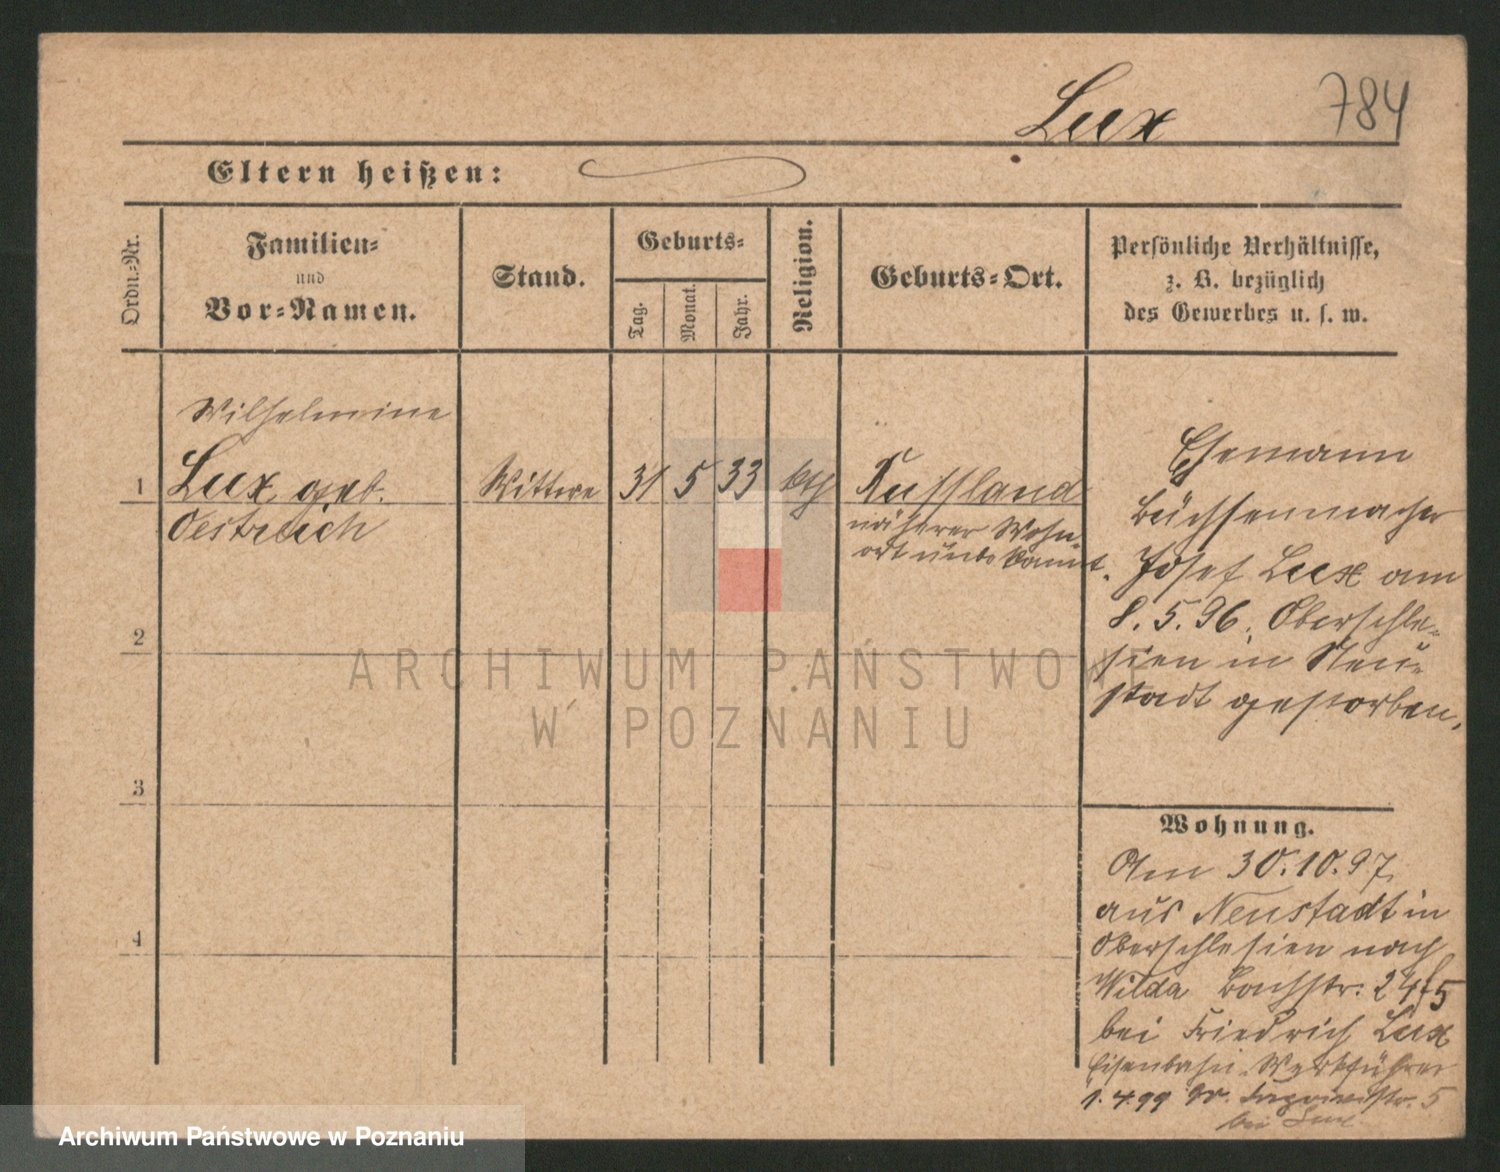 Lux
784
Eltern heißen:
Ordn.-Nr.
Familien-
und
Vor-Namen.
Stand.
Geburts-
Tag.
Monat.
Jahr.
Religion.
Geburts-Ort.
Persönliche Verhältnisse,
z. B. bezüglich
des Gewerbes u. s. w.
Wilhelmine
1 Lux geb. Wittwe 31 5 33 kth Russland
Oestreich
näherer Wohn-
ort unbekannt.
Ehemann
Büchsenmacher
Josef Lux am
8.5.96. Oberschle-
sien in Neu-
stadt gestorben.
2
3
4
Wohnung.
Am 30.10.97
aus Neustadt in
Oberschlesien nach
Wilda Bachstr. 24/5
bei Friedrich Lux
Eisenbahn-Werkführer
1.4.99 5
bei Lux.
ARCHIWUM PAŃSTWOWE
W POZNANIU
Archiwum Państwowe w Poznaniu